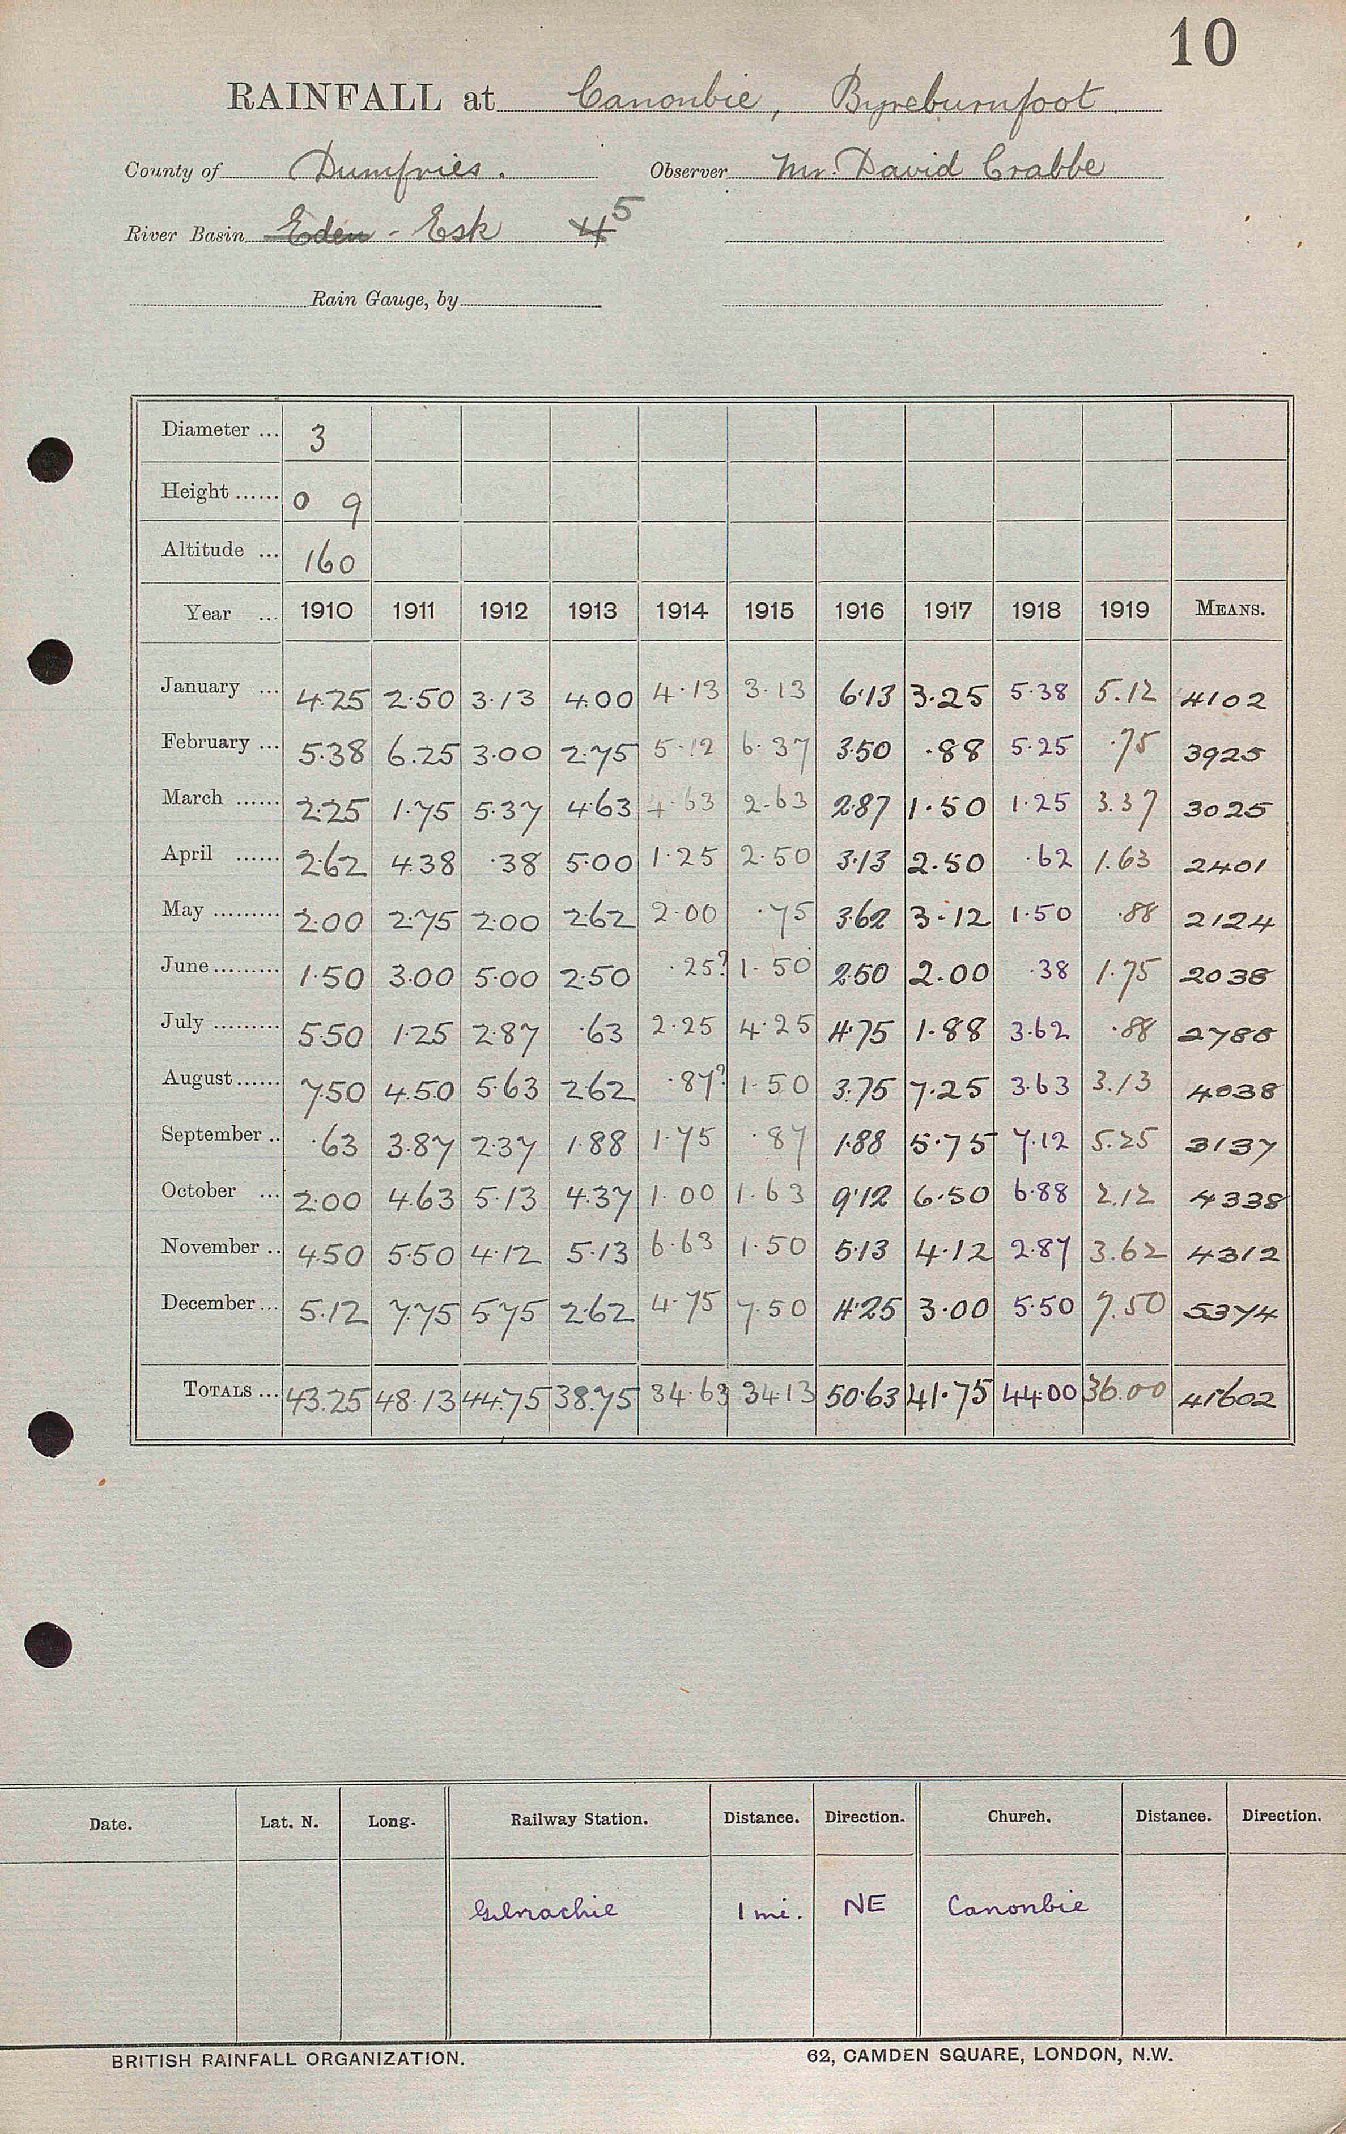 10
RAINFALL at Canonbie, Byreburnfoot
County of Dumfries. Observer Mr. David Crabbe
River Basin Eden - Esk 4 5
Rain Gauge, by
Diameter ... 3
Height ...... 0 9
Altitude ... 160
Year ... 1910 1911 1912 1913 1914 1915 1916 1917 1918 1919 MEANS.
January ... 4.25 2.50 3.13 4.00 4.13 3.13 6.13 3.25 5.38 5.12 4102
February ... 5.38 6.25 3.00 2.75 5.12 6.37 3.50 .88 5.25 .75 3925
March ...... 2.25 1.75 5.37 4.63 4.63 2.63 2.87 1.50 1.25 3.37 3025
April ...... 2.62 4.38 .38 5.00 1.25 2.50 3.13 2.50 .62 1.63 2401
May ......... 2.00 2.75 2.00 2.62 2.00 .75 3.62 3.12 1.50 .88 2124
June ......... 1.50 3.00 5.00 2.50 .25? 1.50 2.50 2.00 .38 1.75 2038
July ......... 5.50 1.25 2.87 .63 2.25 4.25 4.75 1.88 3.62 .88 2788
August ...... 7.50 4.50 5.63 2.62 .87? 1.50 3.75 7.25 3.63 3.13 4038
September .. .63 3.87 2.37 1.88 1.75 .87 1.88 5.75 7.12 5.25 3137
October ... 2.00 4.63 5.13 4.37 1.00 1.63 9.12 6.50 6.88 2.12 4338
November .. 4.50 5.50 4.12 5.13 6.63 1.50 5.13 4.12 2.87 3.62 4312
December ... 5.12 7.75 5.75 2.62 4.75 7.50 4.25 3.00 5.50 7.50 5374
TOTALS ... 43.25 48.13 44.75 38.75 34.63 34.13 50.63 41.75 44.00 36.00 41602
Date. Lat. N. Long. Railway Station. Distance. Direction. Church. Distance. Direction.
Gilnochie 1 mi. NE Canonbie
BRITISH RAINFALL ORGANIZATION. 62, CAMDEN SQUARE, LONDON, N.W.